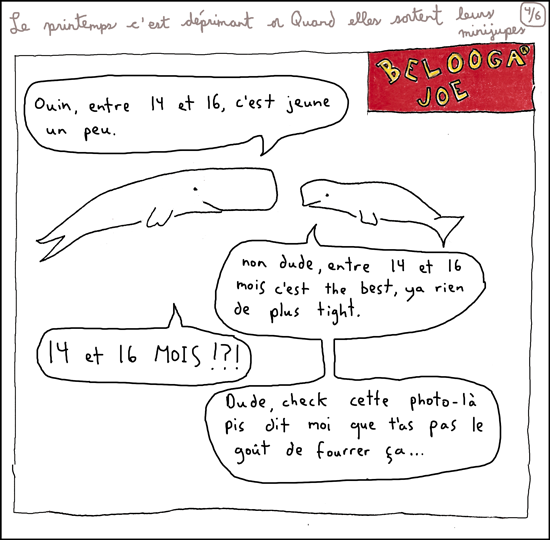 Le printemps c'est déprimant or Quand elles sortent leurs
minijupes
4/6
BELOOGA
JOE
Ouin, entre 14 et 16, c'est jeune
un peu.
non dude, entre 14 et 16
mois c'est the best, ya rien
de plus tight.
14 et 16 MOIS !?!
Dude, check cette photo-là
pis dit moi que t'as pas le
goût de fourrer ça...